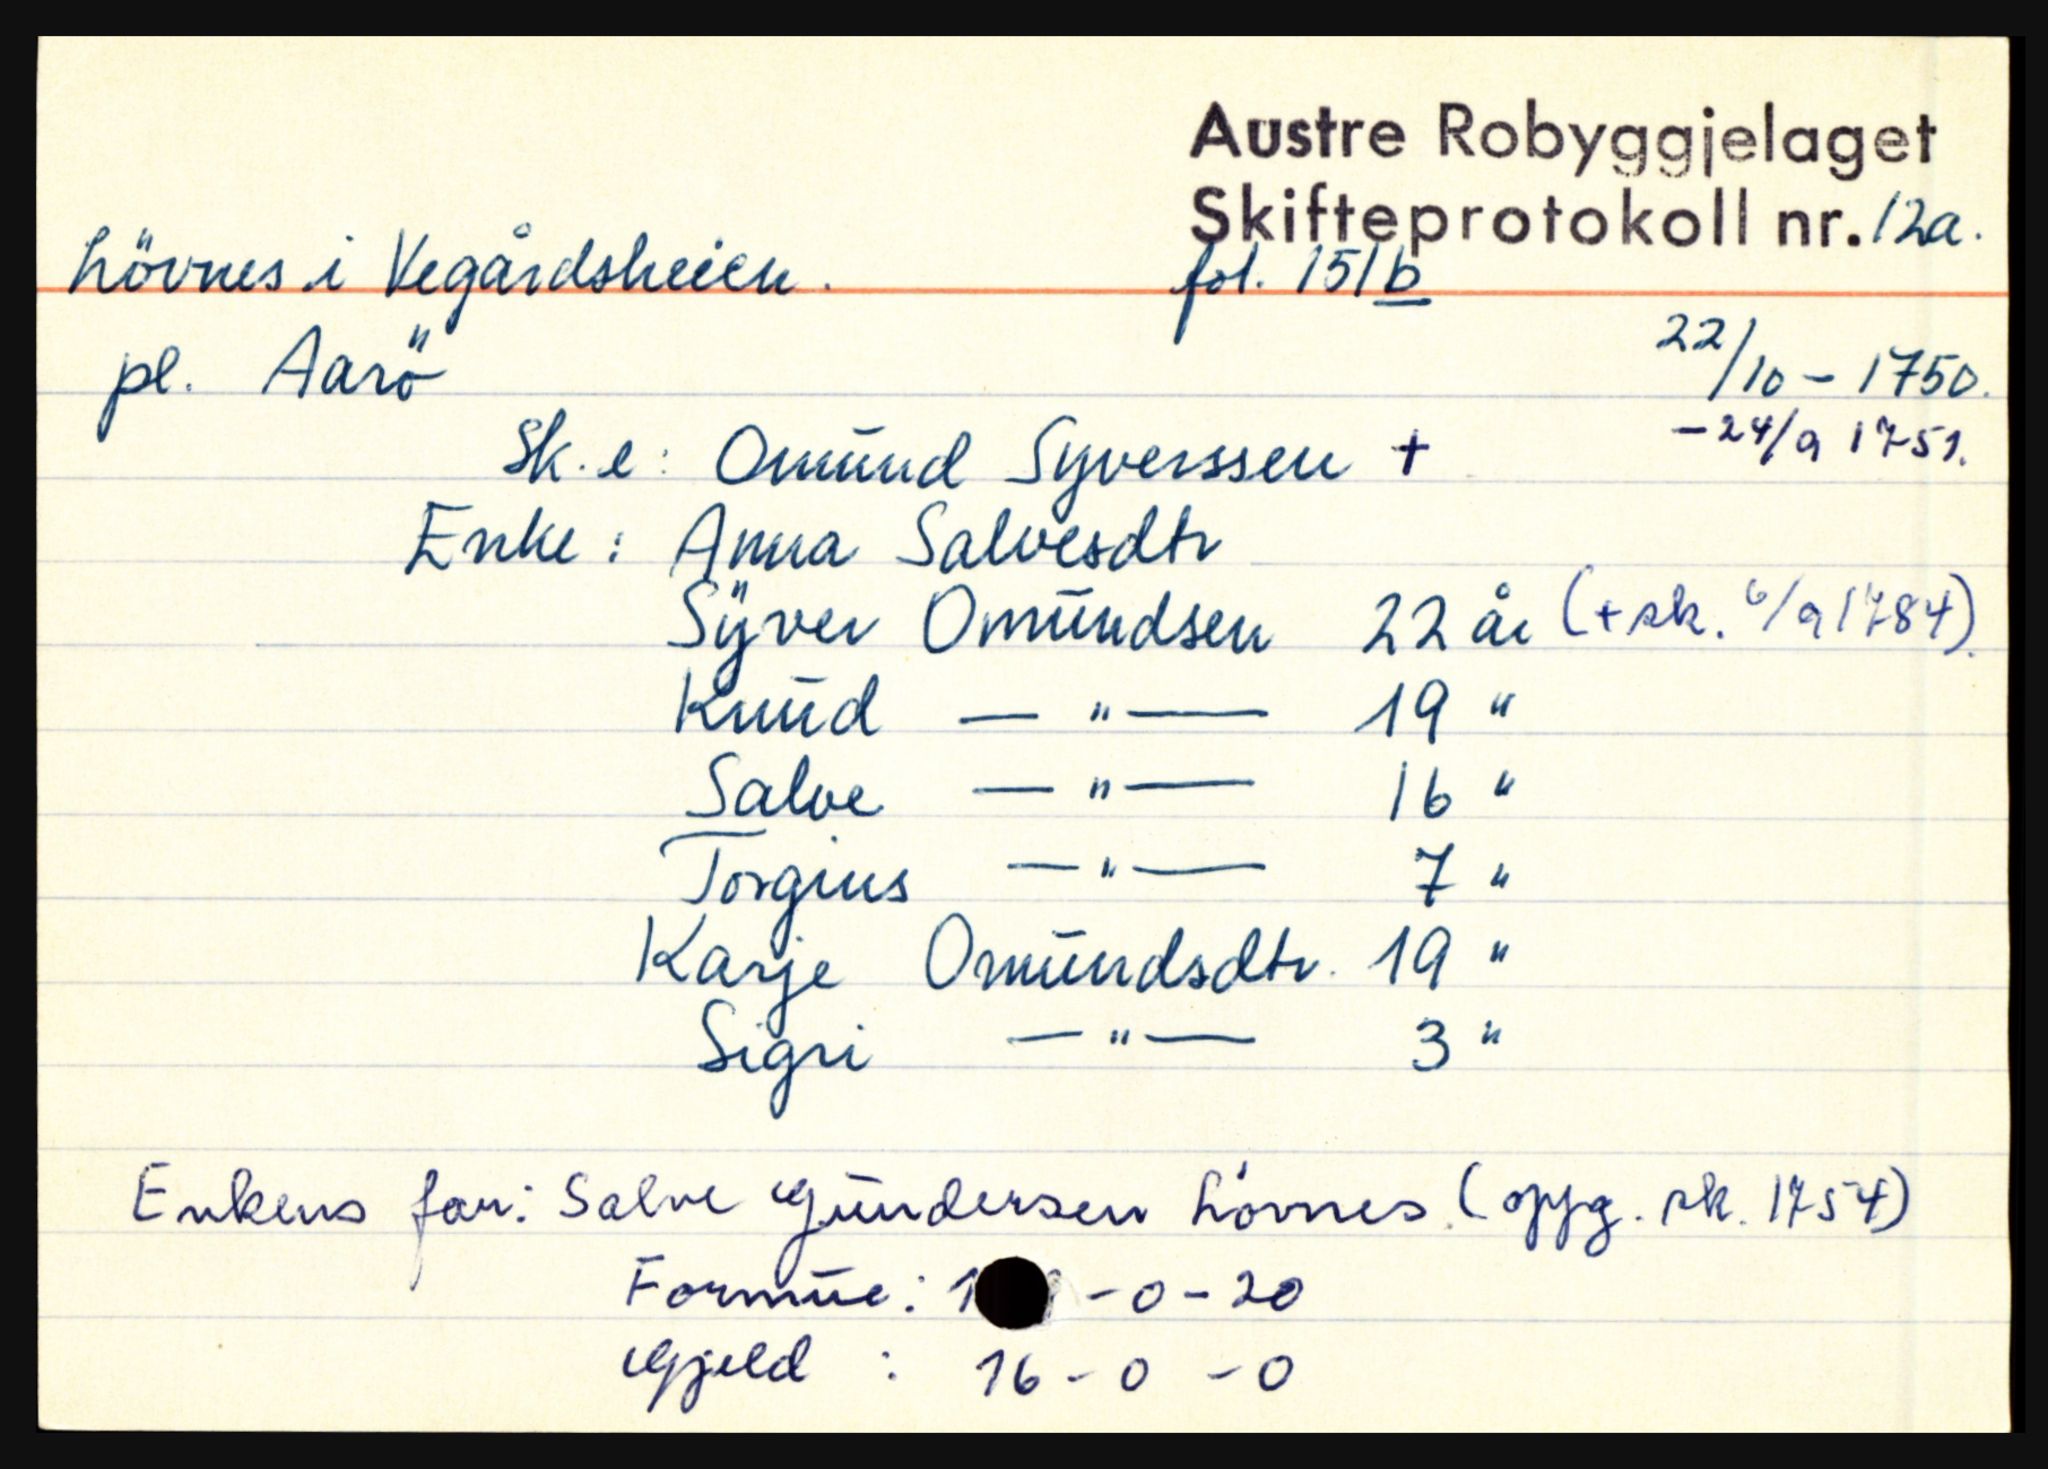 Austre Robyggjelaget
Skifteprotokoll nr. 12a.
Lövnes i Vegårdsheien. fol. 151b
pl. Aarö 22/10 - 1750.
- 24/9 1751.
Sk. e: Omund Syverssen +
Enke: Anna Salvesdtr
Syver Omundsen 22 år (+ sk. 6/9 1784).
Knud — " — 19 "
Salve — " — 16 "
Torgius — " — 7 "
Karje Omundsdtr. 19 "
Sigri — " — 3 "
Enkens far: Salve Gundersen Lövnes. (oppg. sk. 1754)
Formue: - 0 - 20
Gjeld : 16 - 0 - 0